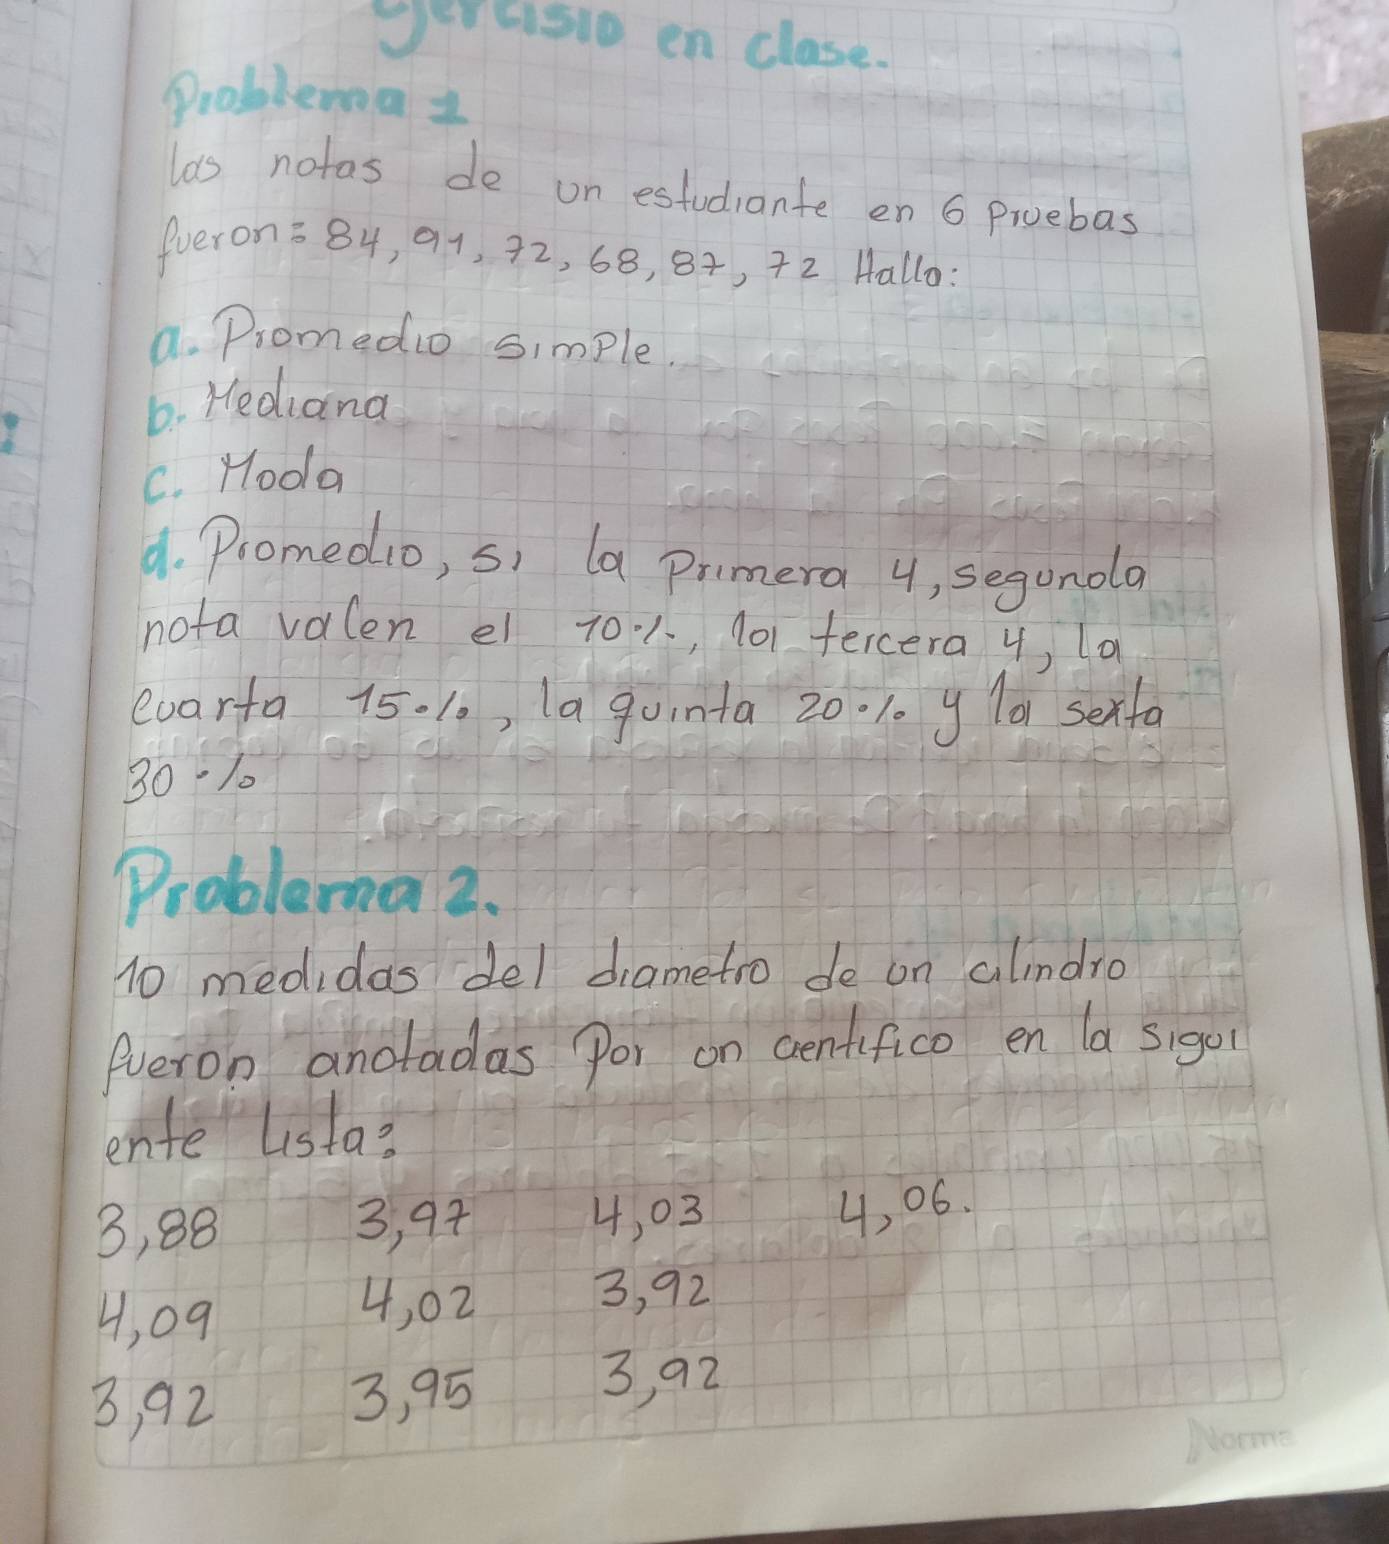 Ejercisio en clase.
Problema 1
las notas de un estudiante en 6 Pruebas
fueron: 84, 91, 72, 68, 87, 72 Hallo:
a. Promedio simple.
b. Mediana
c. Moda
d. Promedio, si la Primera y, segunda
nota valen el 10%, la tercera y, la
cuarta 15%, la quinta 20% y la sexta
30%
Problema 2.
10 medidas del diametro de un cilindro
fueron anotadas Por un cientifico en la sigui
ente lista:
3,88 3,97 4,03 4,06.
4,09 4,02 3,92
3,92 3,95 3,92
Norma